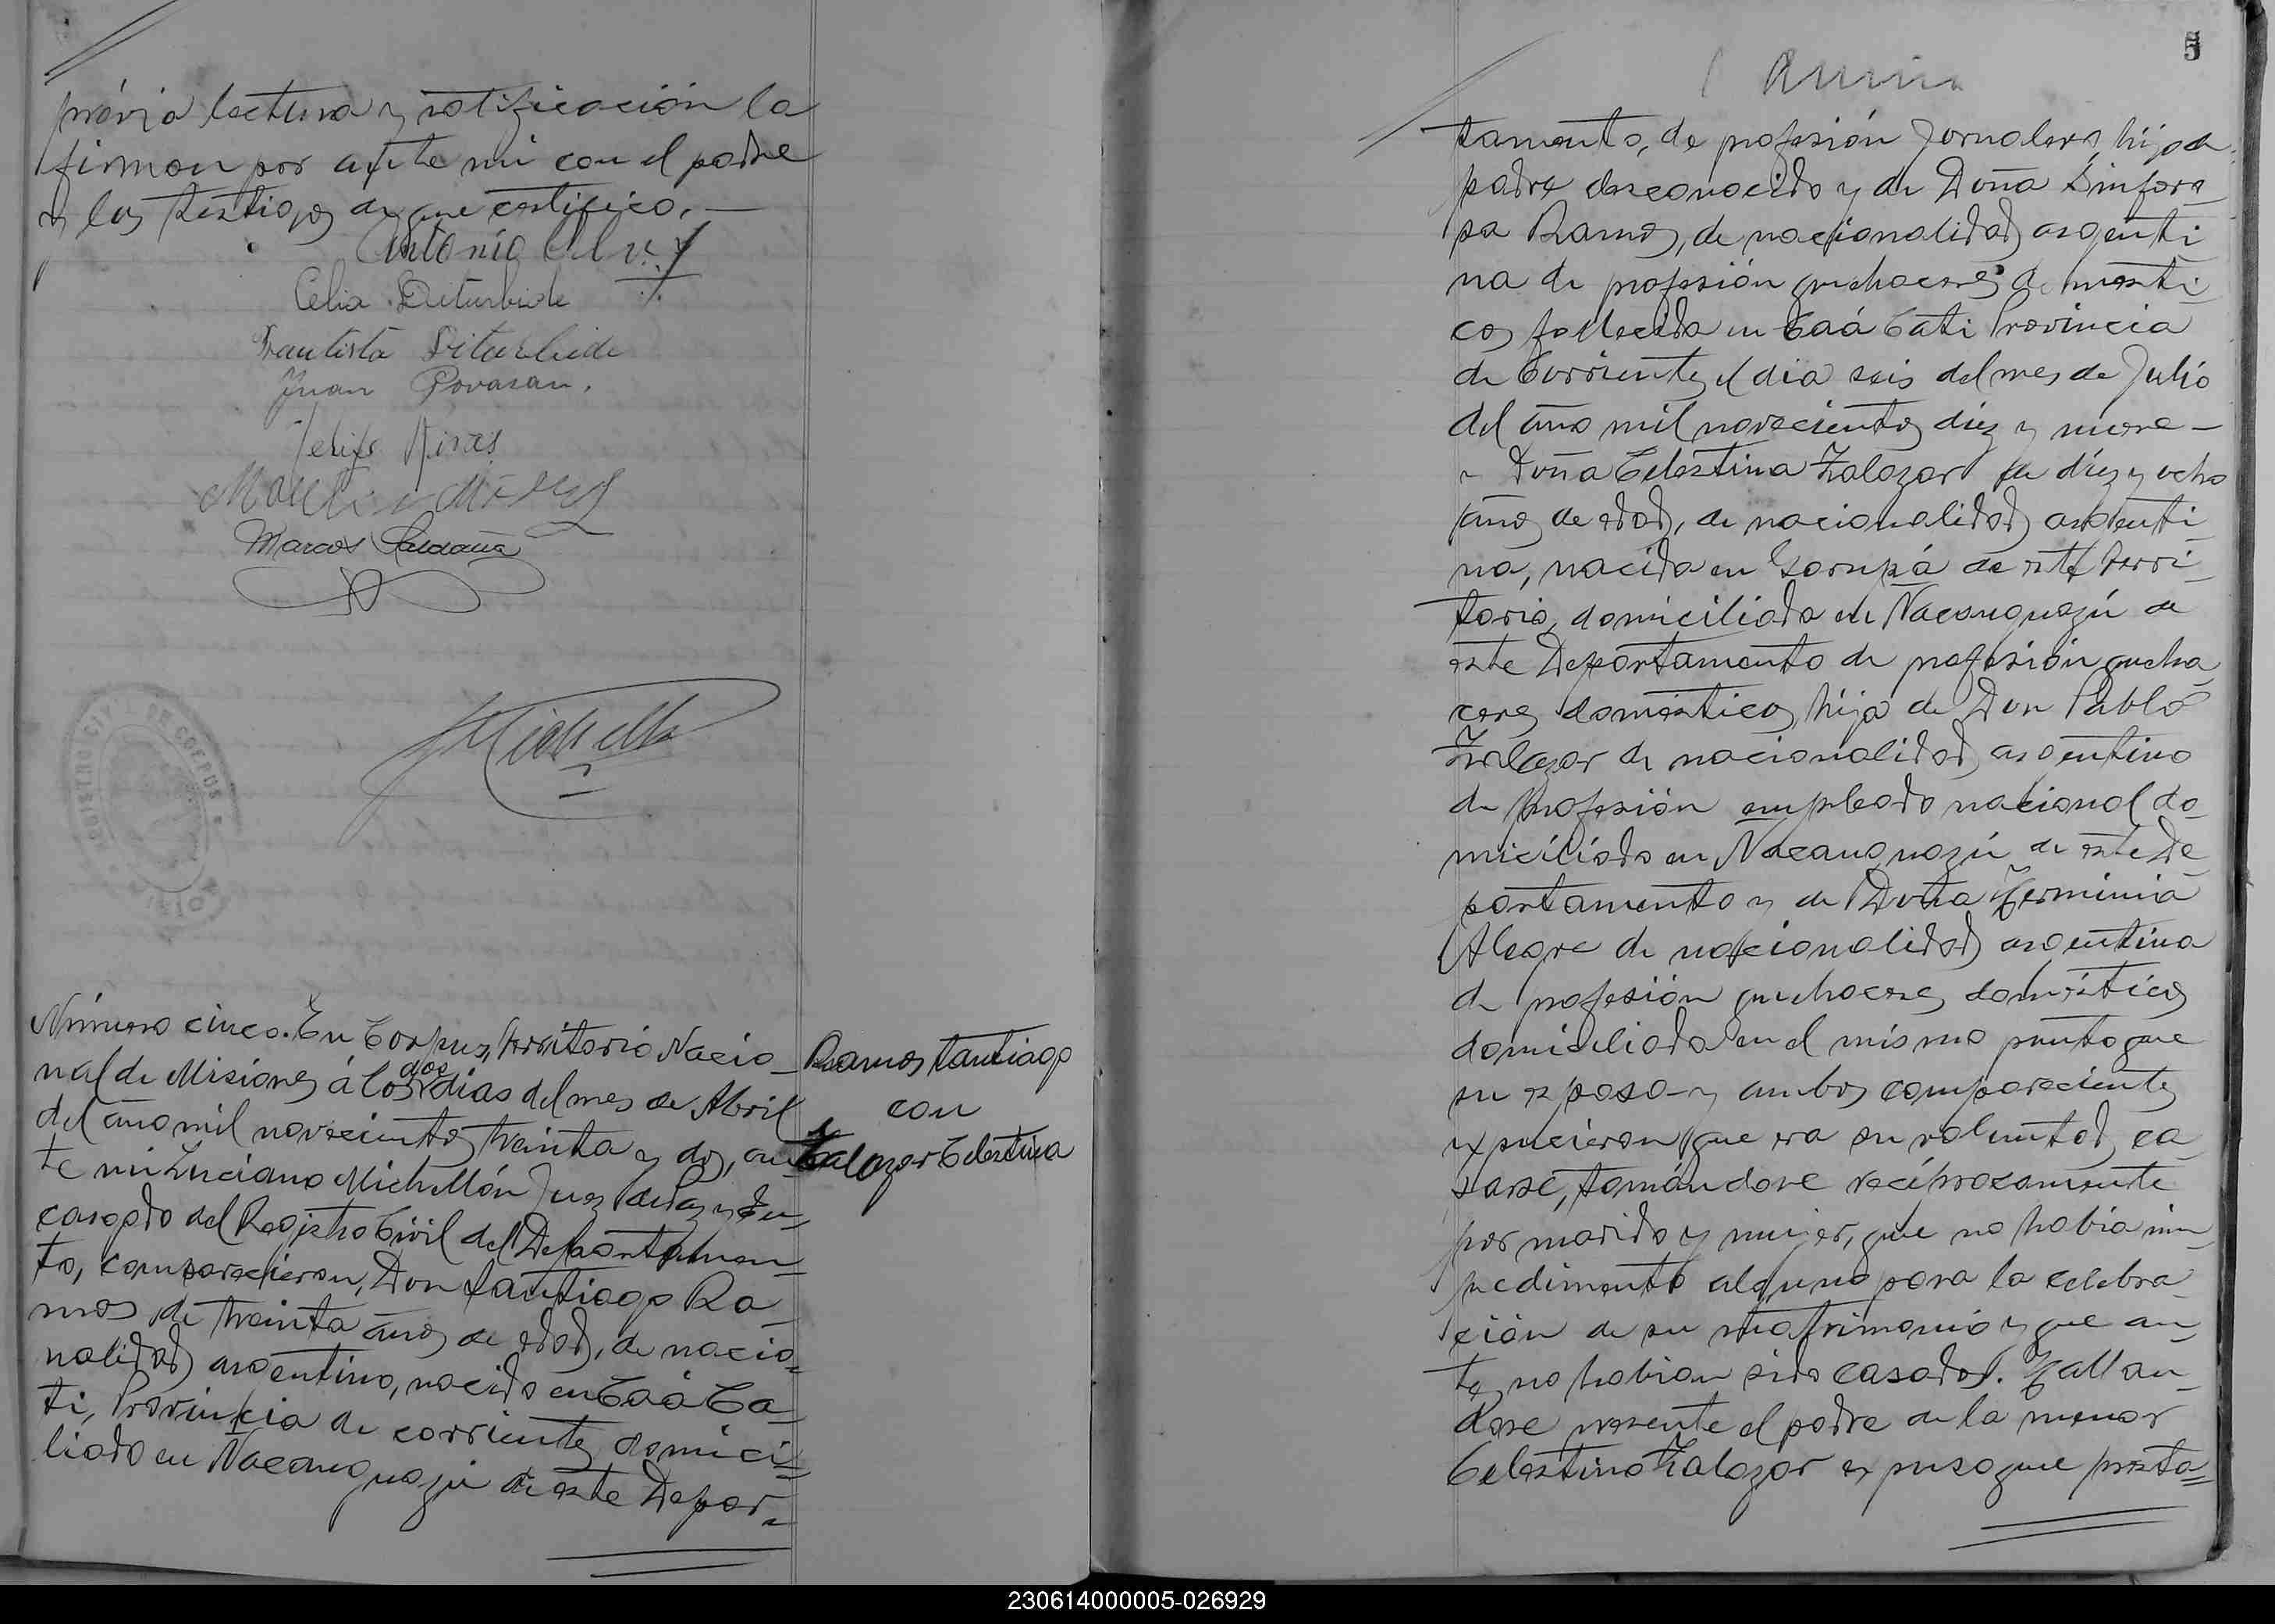 prévia lectura y ratificación la
firman por ante mi con el padre
y los testigos de que certifico.
Antonio
Celia Diturbide
Bautista Diturbide
Juan Povasan.
Felipe
Marcos Saldaña
REGISTRO CIVIL DE CORPUS
Número cinco. En Corpus, Territorio Nacio-
nal de Misiones á los dos dias del mes de Abril
del año mil novecientos treinta y dos, an-
te mi Luciano Michellón Juez de Paz y En-
cargado del Registro Civil del Departamen-
to, comparecieron, Don Santiago Ra-
mos de treinta años de edad, de nacio-
nalidad argentino, nacido en Caá Ca-
ti, Provincia de Corrientes domici-
liado en Ñacanguazú de este Depar-
Ramos Santiago
con
Zalazar Celestina
5
tamento, de profesión Jornalero, hijo de
padre desconocido y de Doña Sinforo-
sa Ramos, de nacionalidad argenti
na de profesión quehaceres domesti-
cos fallecida en Caá Cati Provincia
de Corrientes el dia seis del mes de Julio
del año mil novecientos diez y nueve-
y Doña Celestina Zalazar de diez y ocho
años de edad, de nacionalidad argenti-
na, nacida en Garupá de este Terri-
torio, domiciliada en Ñacanguazú de
este Departamento de profesión queha-
ceres domésticos, hija de Don Pablo
Zalazar de nacionalidad argentino
de profesión empleado nacional do-
miciliado en Ñacanguazú de este De-
partamento y de Doña Herminia
Alegre de nacionalidad argentina
de profesión quehaceres domésticos
domiciliada en el mismo punto que
su esposo- y ambos comparecientes
expusieron que era su voluntad ca-
sarse, tomándose recíprocamente
por marido y mujer, que no habia im-
pedimento alguno para la celebra-
ción de su matrimonio y que an-
tes no habian sido casados. Hallan-
dose presente el padre de la menor
Celestina Zalazar expuso que presta=
230614000005-026929